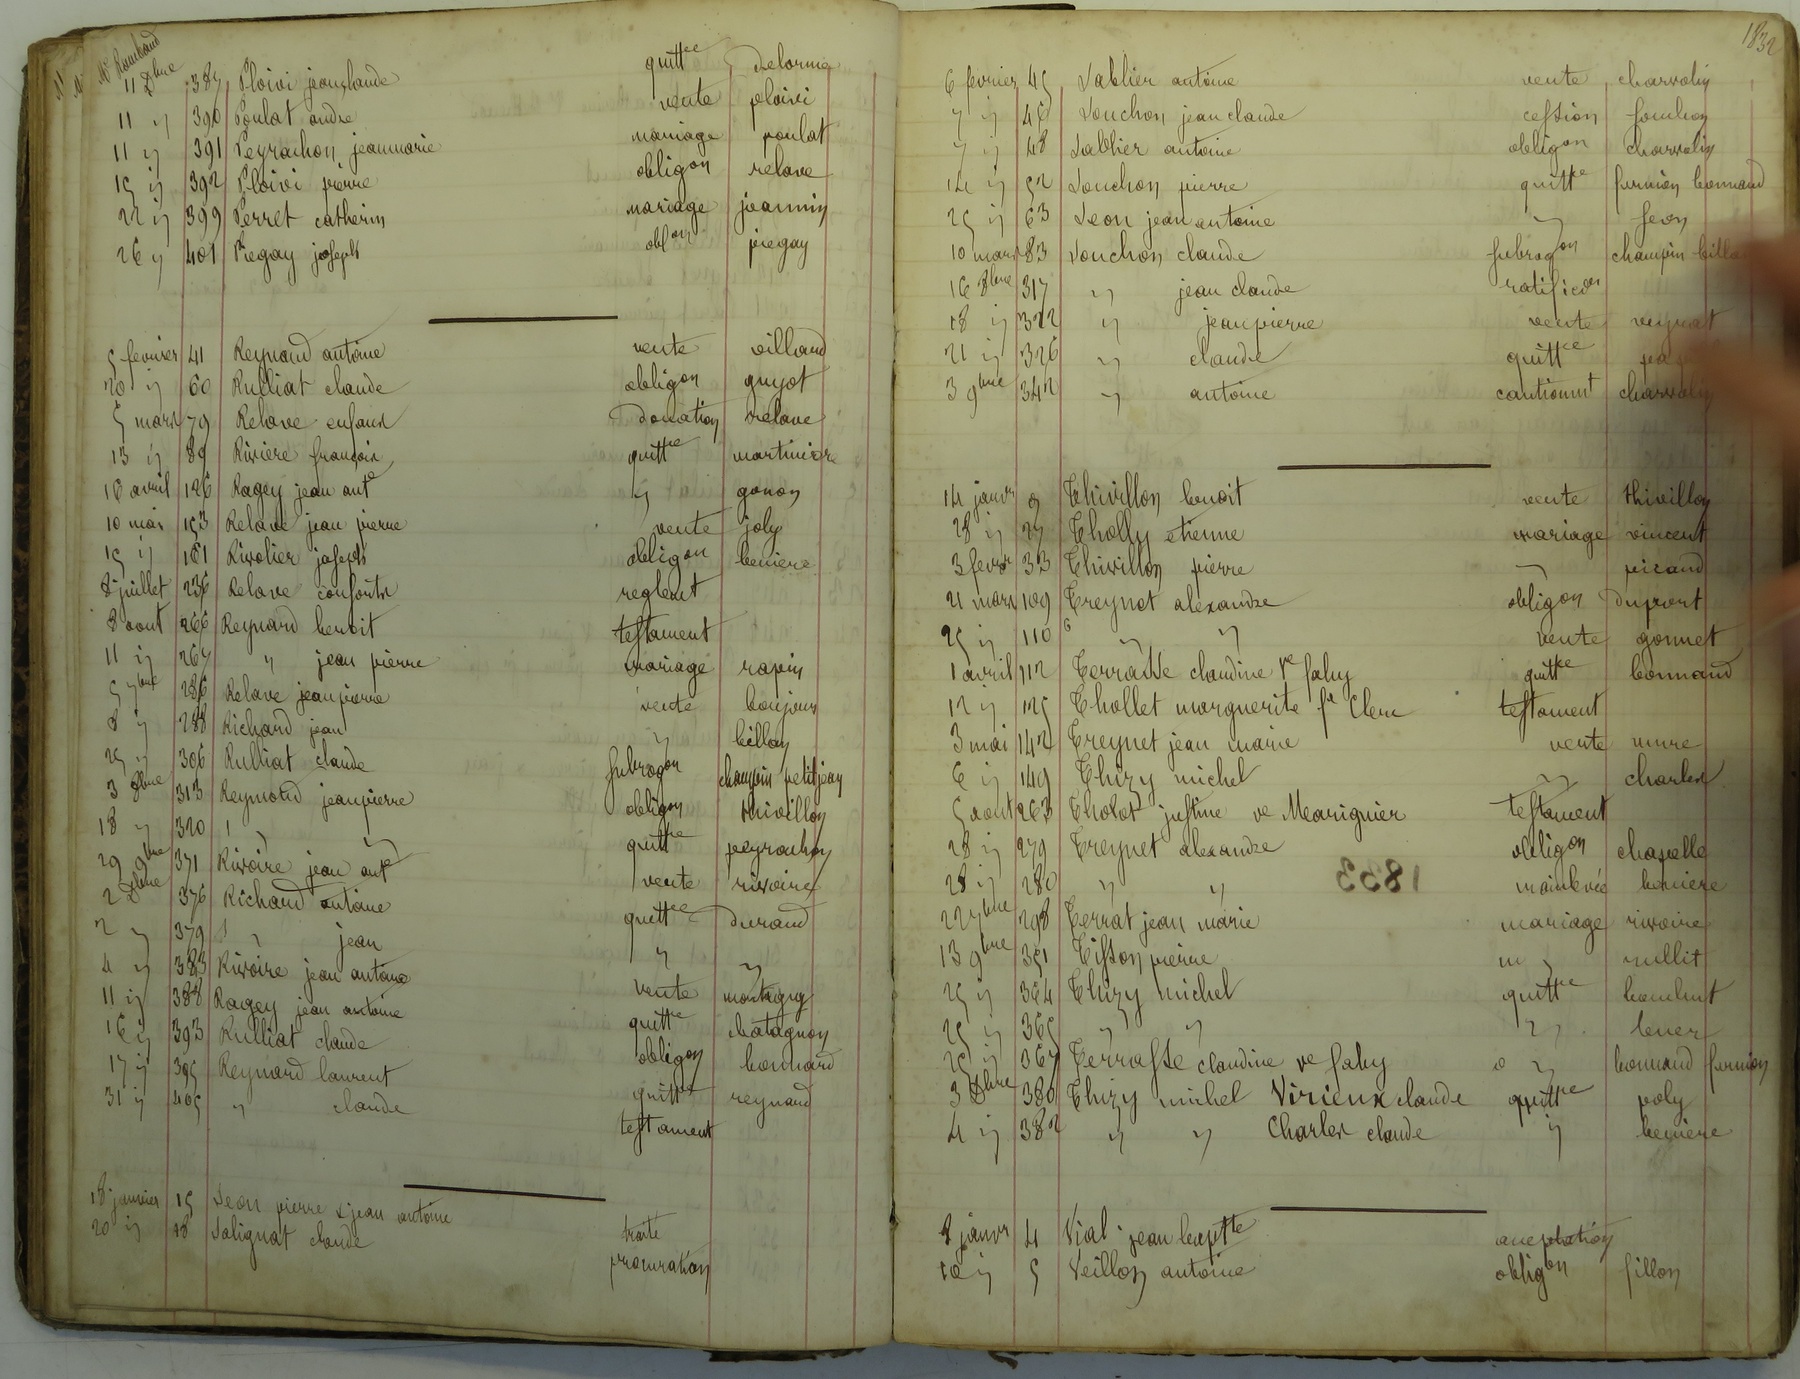 Mr Rambaud
11 Dbre 387 Ploivi jean claude quittce delorme
11 " 390 Poulat andré vente ploivi
11 " 391 Peyrachon jeanmarie mariage poulat
15 " 392 Ploivi pierre obligon relave
22 " 399 Perret catherin mariage jeannin
26 " 401 Piegay joseph oblon piegay
5 fevrier 41 Reynaud antoine vente villand
20 " 60 Rulliat claude obligon guyot
5 mars 79 Relave enfans donation relave
13 " 89 Riviere françois quittce martiniere
16 avril 126 Ragey jean ant " gonon
10 mai 153 Relave jean pierre vente joly
15 " 161 Rivolier joseph obligon beniere
8 juillet 236 Relave consorts reglemt
8 aout 266 Reynard benoit testament
11 " 267 " jean pierre mariage rapin
5 7bre 286 Relave jean pierre vente bonjour
8 " 288 Richard jean " billay
25 " 306 Rulliat claude subrogon champin petitjean
3 8bre 313 Reymond jeanpierre obligon thivillon
18 " 320 " " quittce peyrachon
29 9bre 371 Rivoire jean ant vente rivoire
2 Dbre 376 Richard antoine quittce durand
2 " 379 " jean " "
4 " 383 Rivoire jean antoine vente montagny
11 " 388 Ragey jean antoine quittce chatagnon
16 " 393 Rulliat claude obligon bonnard
17 " 395 Reynard laurent quittce reynaud
31 " 405 " claude testament
18 janvier 15 Seon pierre & jean antoine traite
20 " 18 Salignat claude procuration
1832
6 fevrier 45 Sablier antoine vente charvolin
7 " 46 Souchon jean claude cession souchon
7 " 48 Sablier antoine obligon charvolin
14 " 52 Souchon pierre quittce furnion bonnand
25 " 63 Seon jean antoine " seon
10 mars 83 Souchon claude subrogon champin
16 8bre 317 " jean claude ratificon
18 " 322 " jean pierre vente
21 " 326 " claude quittce
3 9bre 342 " antoine cautionnt charvolin
14 janvr 9 Thivillon benoit vente thivillon
28 " 27 Tholly etienne mariage vincent
3 fevr 33 Thivillon pierre " picaud
21 mars 109 Treynet alexandre obligon duport
25 " 110 " " vente gonnet
1 avril 112 Terrasse claudine ve faby quittce bonnand
12 " 125 Thollet marguerite fe Clerc testament
3 mai 142 Treynet jean marie vente mure
6 " 149 Thizy michel " charles
5 aout 263 Tholot justine ve Meurignier testament
28 " 279 Treynet alexandre obligon chapelle
28 " 280 " " mainlevée beniere
22 7bre 298 Terrat jean marie mariage rivoire
13 9bre 351 Tisson pierre " rullit
25 " 364 Thizy michel quittce
25 " 365 " " "
25 " 367 Terrasse claudine ve faby " bonnand furnion
3 Dbre 380 Thizy michel Virieux claude quittce poly
4 " 382 " " Charles claude " beniere
8 janvr 4 Vial jean baptte acceptation
10 " 5 Veillon antoine obligon fillon
1833